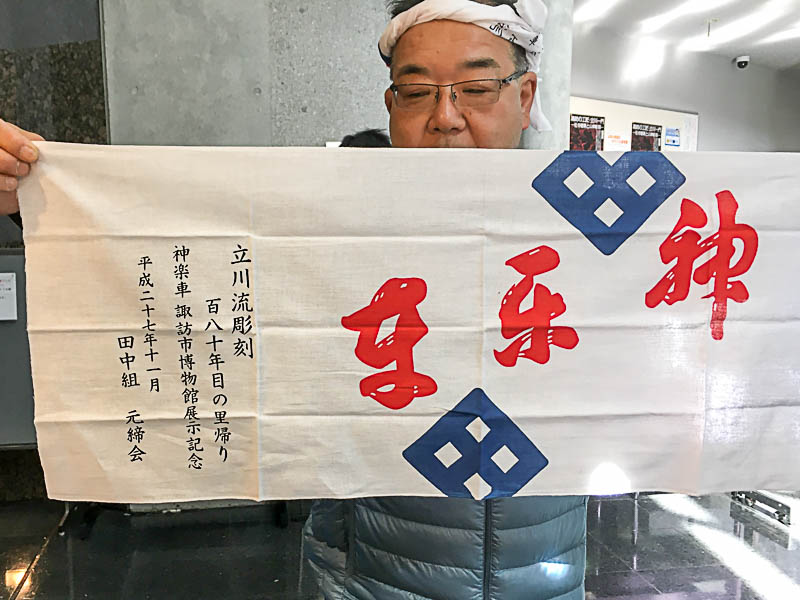 神楽車
立川流彫刻
百八十年目の里帰り
神楽車 諏訪市博物館展示記念
平成二十七年十一月
田中組 元締会